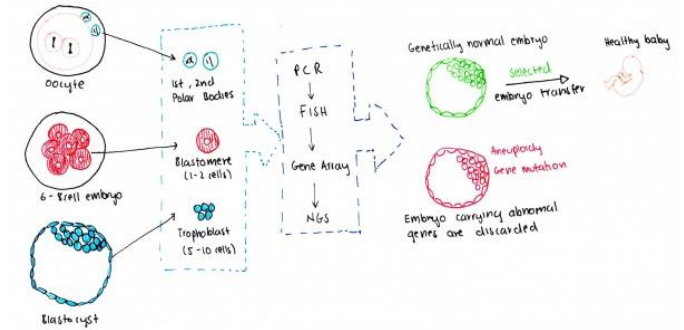 Oocyte
6-8cell embryo
Blastocyst
1st, 2nd
Polar Bodies
Blastomere
(1-2 cells)
Trophoblast
(5-10 cells)
PCR
FISH
Gene Array
NGS
Genetically normal embryo
Selected
embryo transfer
Healthy baby
Aneuploidy
Gene mutation
Embryo carrying abnormal
genes are discarded